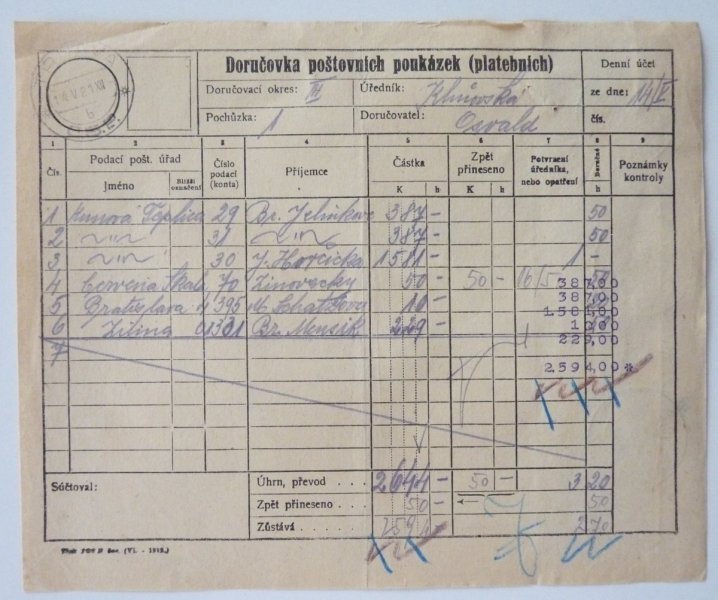 Doručovka poštovních poukázek (platebních)
Denní účet
Doručovací okres: III Úředník: Klhůvska
ze dne: 14/V
Pochůzka: 1 Doručovatel: Osvald
čís.
1 2 3 4 5 6 7 8 9
Čís. Podací pošt. úřad Číslo podací (konta) Příjemce Částka Zpět přineseno Potvrzení úředníka, nebo opatření Doručné Poznámky kontroly
Jméno Bližší označení K h K h h
1 Kunová Teplica 29 Br. Jelínkova 387 - 50
2 -"- 31 -"- 387 - 50
3 -"- 30 J. Horčicka 1581 - 1 -
4 Červená Skala 70 Zinovecky 50 - 50 - 16/5 50
387,00
5 Bratislava 4 395 M. Schatzova 10 -
387,00
1.581,00
6 Žilina 01331 Br. Mensik 229 -
10,00
229,00
7
2.594,00 *
Súčtoval:
Úhrn, převod . . . 2644 - 50 - 3 20
Zpět přineseno . . . 50 - 50
Zůstává . . . . . . 2594 2 70
(VI. - 1919.)